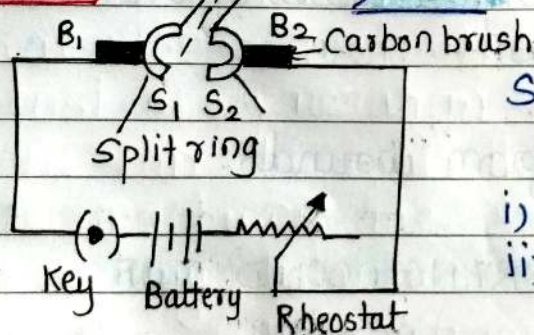 B₁ B₂ Carbon brush
S₁ S₂ S
Split ring
i)
ii
Key Battery Rheostat